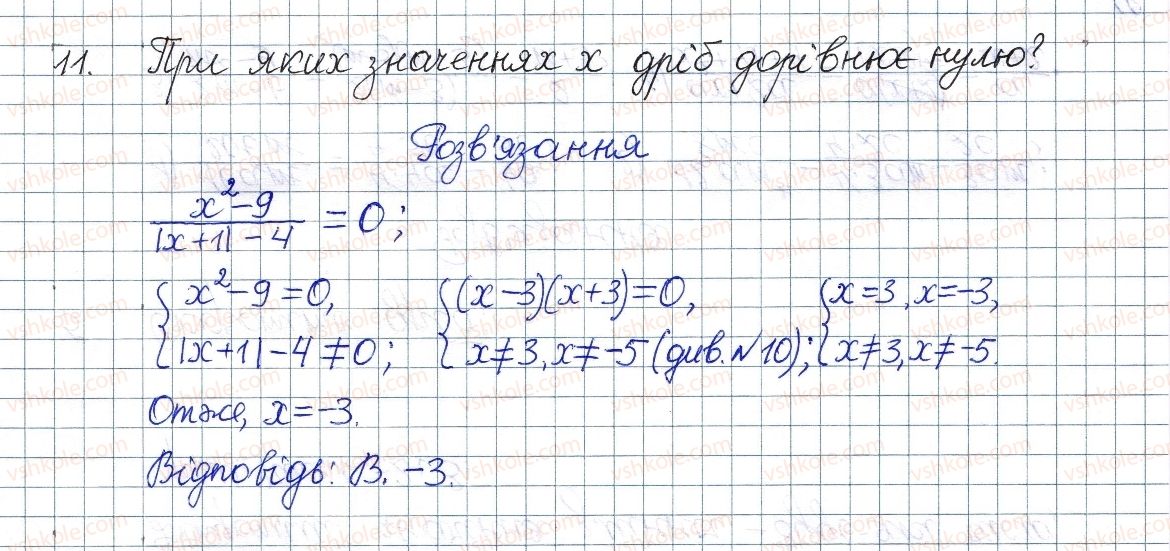 11. При яких значеннях x дріб дорівнює нулю?
Розв'язання
x²-9 / |x+1|-4 = 0;
{x²-9=0, |x+1|-4≠0; {(x-3)(x+3)=0, x≠3, x≠-5 (див. №10); {x=3, x=-3, x≠3, x≠-5.
Отже, x=-3.
Відповідь: В. -3.